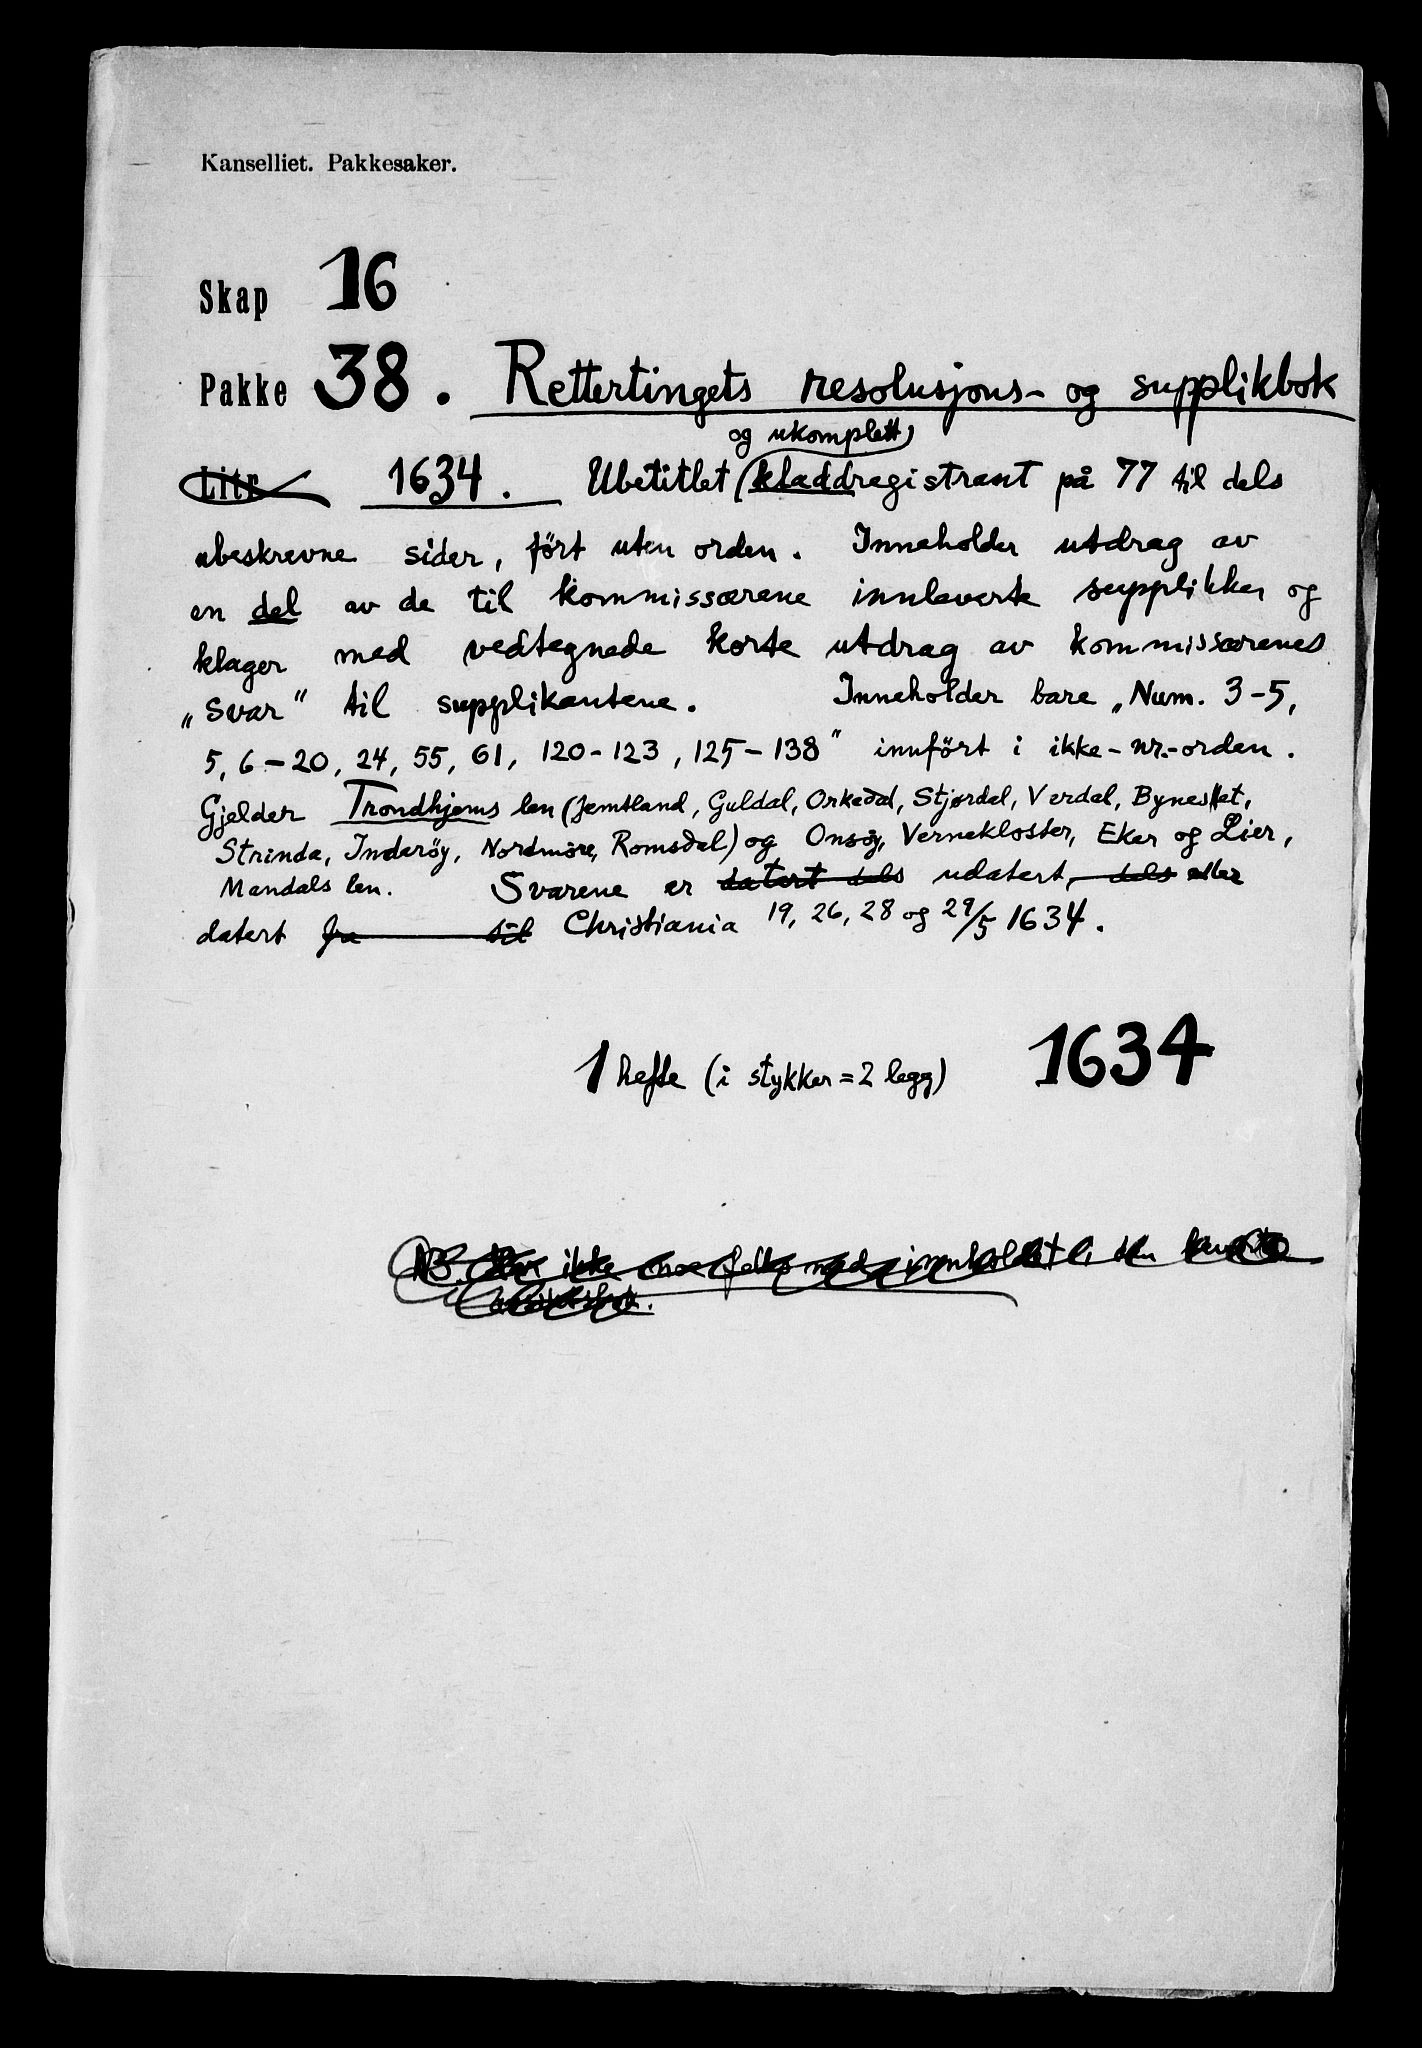 Kanselliet. Pakkesaker.
Skap 16
Pakke 38. Rettertingets resolusjons- og supplikbok
og ukomplett
Litr 1634. Ubetitlet (kladdregistrant på 77 til dels
ubeskrevne sider, ført uten orden. Inneholder utdrag av
en del av de til kommissærene innleverte supplikker og
klager med vedtegnede korte utdrag av kommissærenes
„Svar" til supplikantene. Inneholder bare „Num. 3-5,
5, 6-20, 24, 55, 61, 120-123, 125-138" innført i ikke-nr.-orden.
Gjelder Trondhjems len (Jemtland, Guldal, Orkedal, Stjørdal, Verdal, Byneslet,
Strinda, Inderøy, Nordmøre, Romsdal) og Onsøy, Vernekloster, Eker og Lier,
Mandals len. Svarene er datert dels udatert, dels eller
datert fra til Christiania 19, 26, 28 og 29/5 1634.
1 hefte (i stykker = 2 legg) 1634
NB. ikke noe felles med innholdet i den